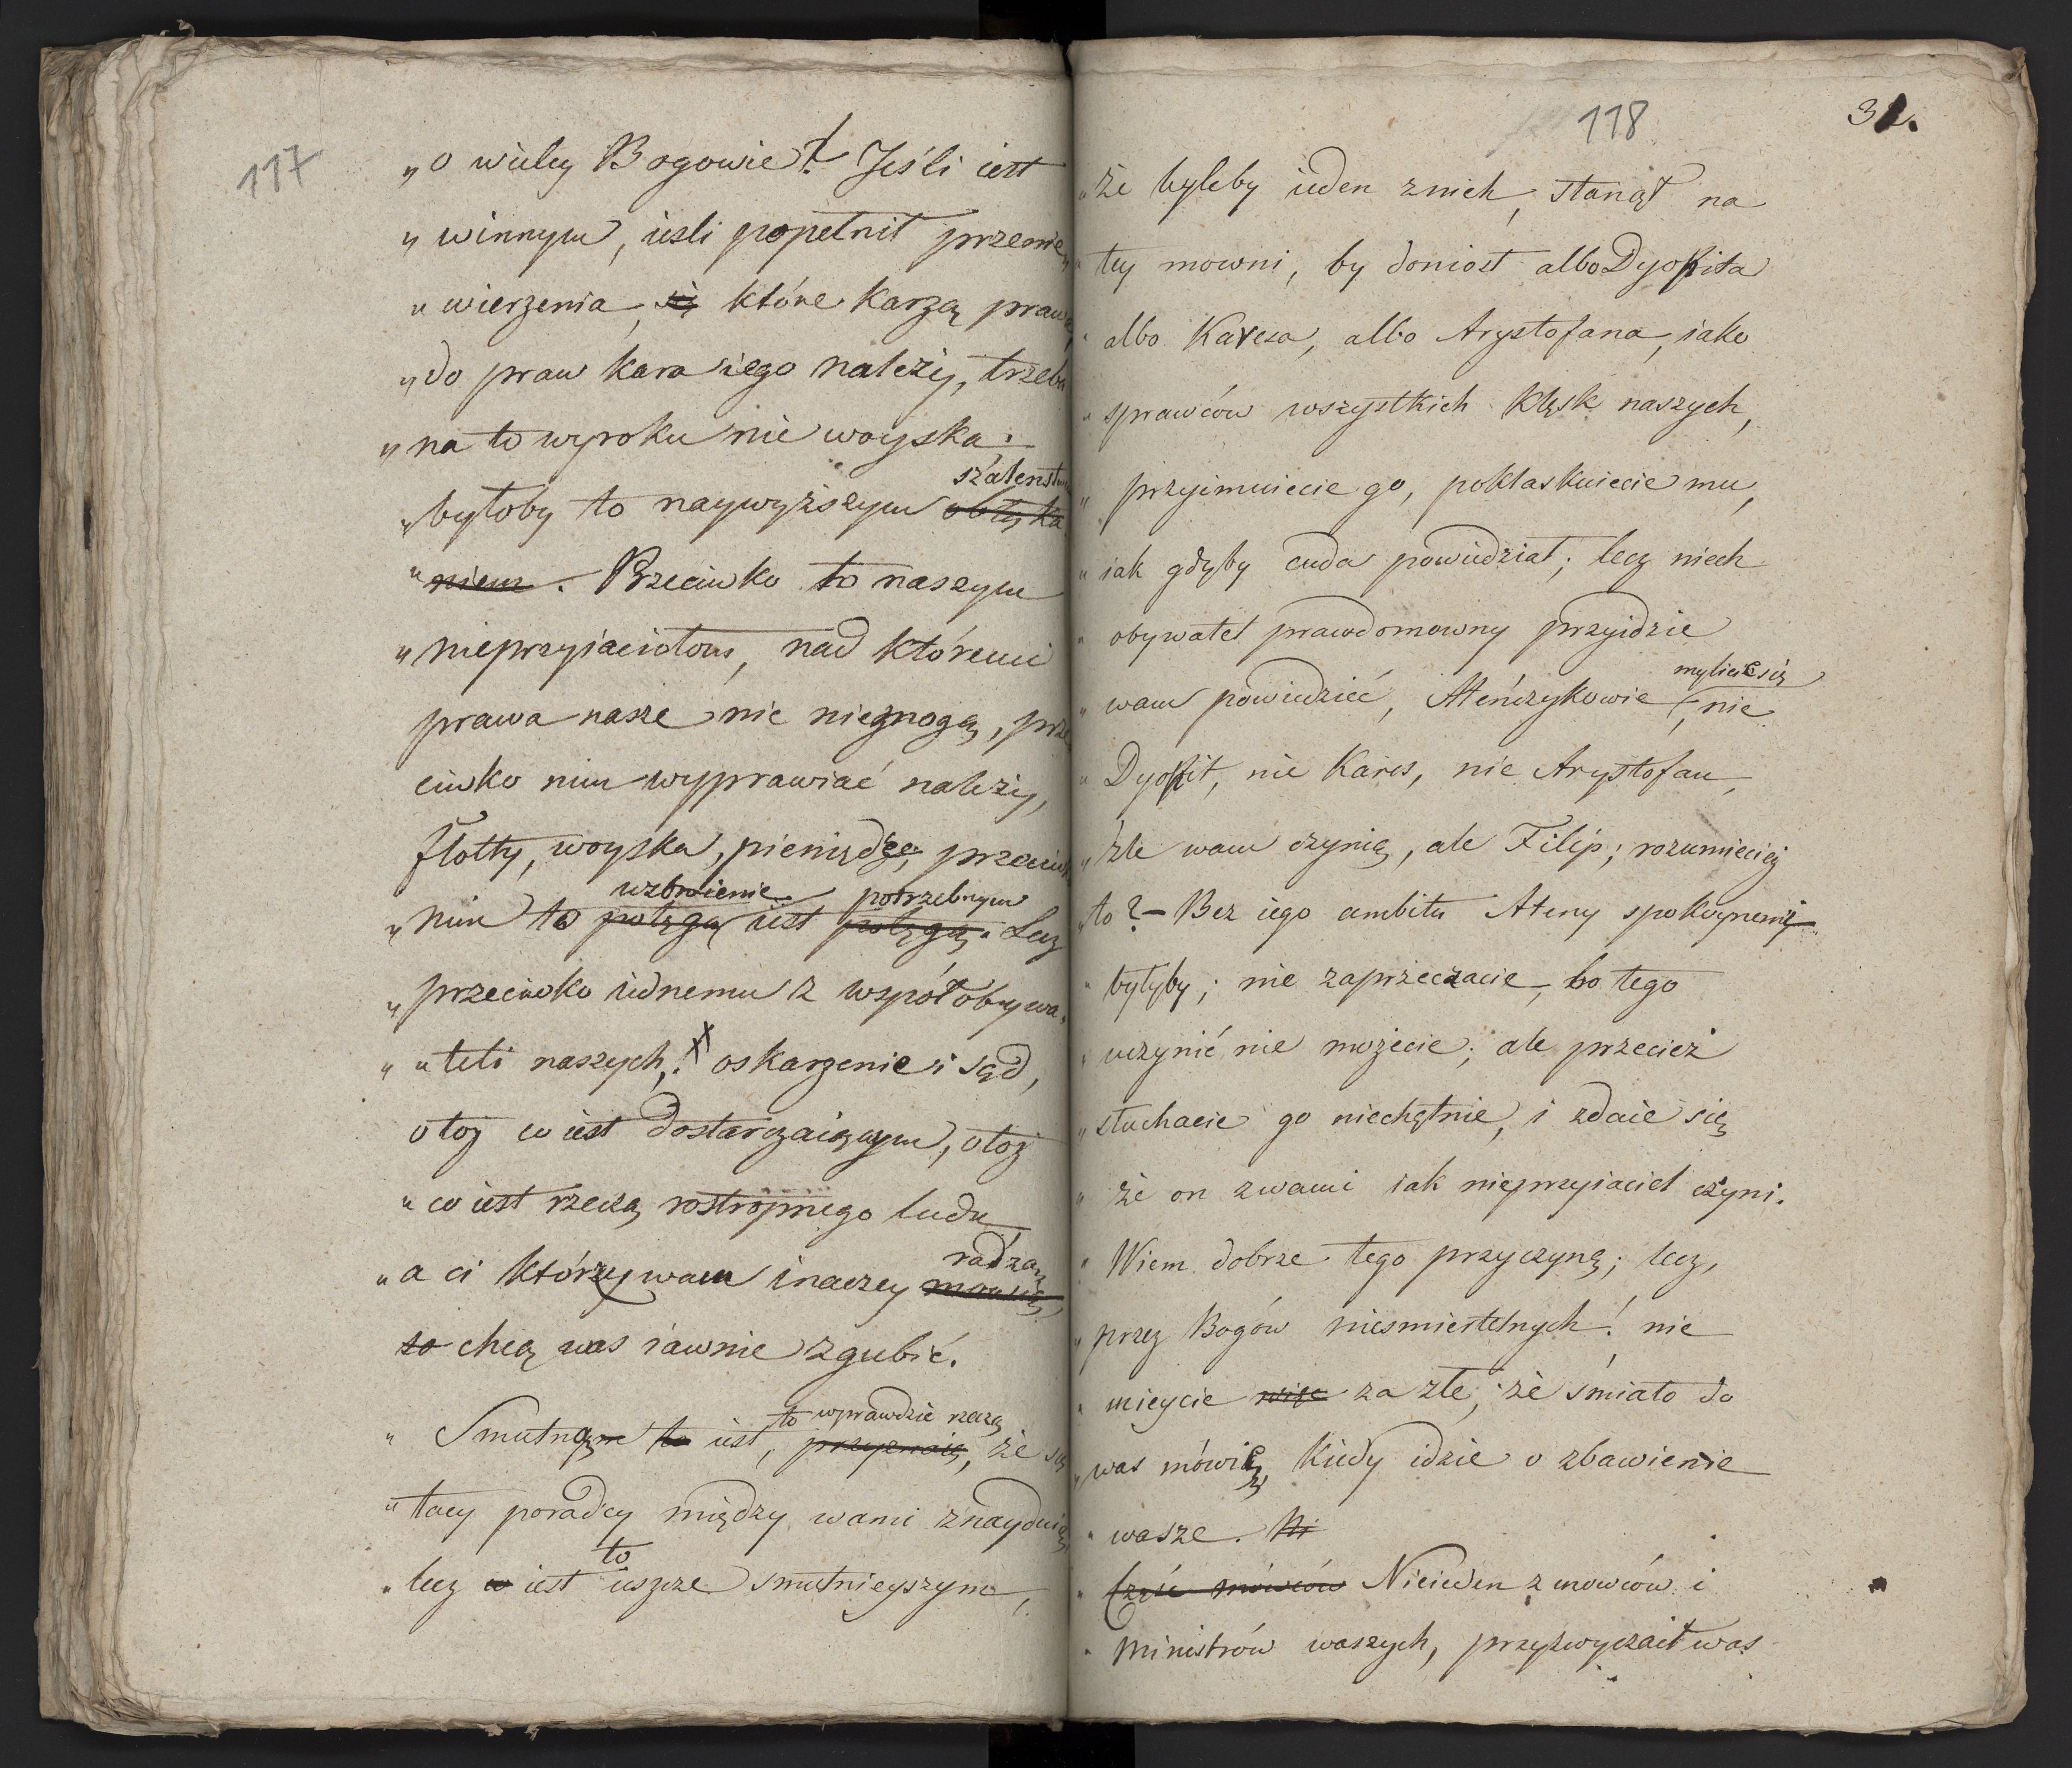 117
„o wielcy Bogowie! Jeśli iest
„winnym, iesli popełnił przenie„
„wierzenia, się które karzą prawa,
„do praw kara iego należy, trzeba
„na to wyroku nie woyska.
szaleństwem
„byłoby to naywyższym obłąka
„niem. Przeciwko to naszym
„nieprzyiaciołom, nad któremi
prawa nasze nic niezmogą, prze
ciwko nim wyprawiać należy,
flotty, woyska, pieniądze, przeciwko
wzbronienie potrzebnym
„nim to potęga iest potęgą. Lecz
„przeciwko iednemu z współobywa„
„teli naszych, oskarzenie i sąd,
otoż co iest dostarczaiącym, otoż
„co iest rzeczą rostropnego ludu
radzą
„a ci którzy wam inaczey mówią,
to chcą was iawnie zgubić.
to wprawdzie rzeczą
„Smutnąm to iest, przyznaię, że się
„tacy poradcy między wami znayduią
to
„lecz co iest ieszcze smutnieyszym,
118
32.
„że byleby ieden znich, stanął na
„tey mowni, by doniosł albo Dyofita
„albo Karesa, albo Arystofana, iako
„sprawców wszystkich klęsk naszych,
„przyimuiecie go, poklaskuiecie mu,
„iak gdyby cuda powiedział; lecz niech
„obywatel prawdomowny przyidzie
mylicie się
„wam powiedzieć, Ateńczykowie, nie
„Dyofit, nie Kares, nie Arystofan,
„źle wam czynią, ale Filip; rozumiecież
„to? – Bez iego ambitu Ateny spokoynemi
„byłyby; nie zaprzeczacie, bo tego
„uczynić nie możecie; ale przecież
„słuchacie go niechętnie, i zdaie się
„że on zwami iak nieprzyiaciel czyni.
„Wiem dobrze tego przyczynę; lecz,
„przez Bogów niesmiertelnych! nie
„mieycie więc za złe, że śmiało do
„was mówię, kiedy idzie o zbawienie
„wasze. Ni
„Część mówców Nieieden z mowców i
„Ministrów waszych, przyzwyczaił was